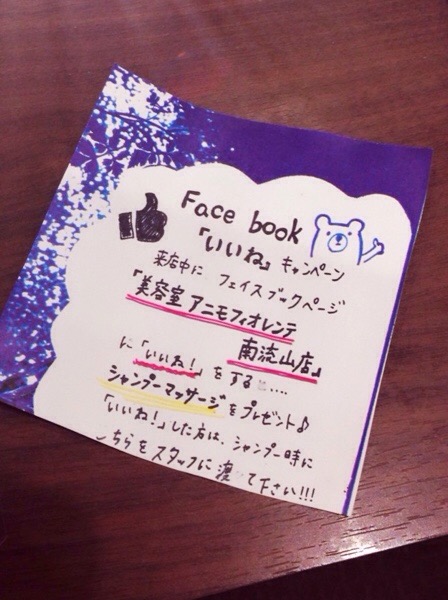 Face book
「いいね」キャンペーン
来店中に フェイスブックページ
「美容室 アニモフィオレンテ
南流山店」
に「いいね!」をする....
シャンプーマッサージをプレゼント♪
「いいね!」した方は、シャンプー時に
こちらをスタッフに渡して下さい!!!